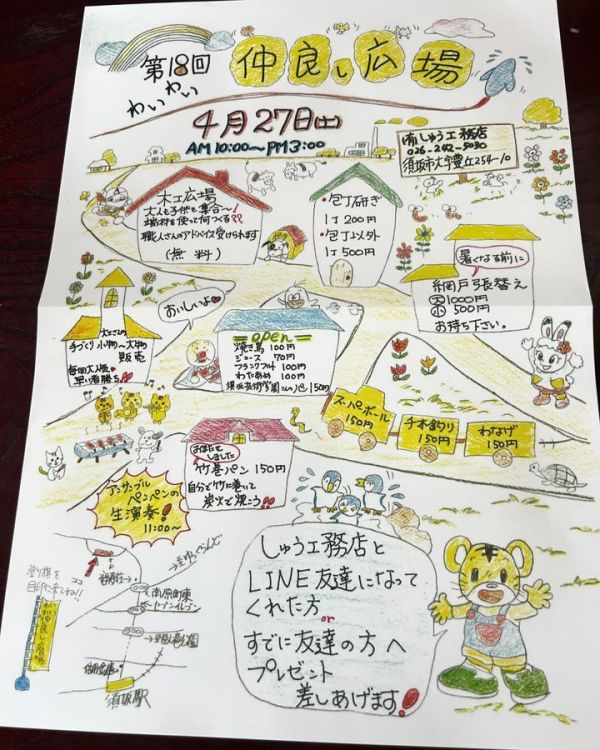 第18回
わいわい
仲良し広場
4月27日(土)
AM10:00~PM3:00
(有)しゅう工務店
026-242-5030
須坂市大字豊丘254-10
木工広場
大人も子供も集合~!
端材を使って何つくる??
職人さんのアドバイス受けられます
(無料)
・包丁研ぎ
1丁200円
・包丁以外
1丁500円
暑くなる前に
網戸張替え
大1000円
小500円
お持ち下さい。
大工さんの
手づくり小物~大物
販売
毎回大人気
早い者勝ち!!
おいしいよ
open
焼き鳥 100円
ジュース 70円
フランクフルト 100円
わたあめ 100円
150円
スーパーボール
150円
千本釣り
150円
わなげ
150円
お待たせしました
竹巻パン 150円
自分で竹に巻いて
炭火で焼こう!!
アンサンブル
ペンペンの
生演奏!
11:00~
登り旗を
目印に来てね!!
ココ
南原町東
セブンイレブン
須坂駅
しゅう工務店と
LINE友達になって
くれた方
or
すでに友達の方へ
プレゼント
差しあげます!